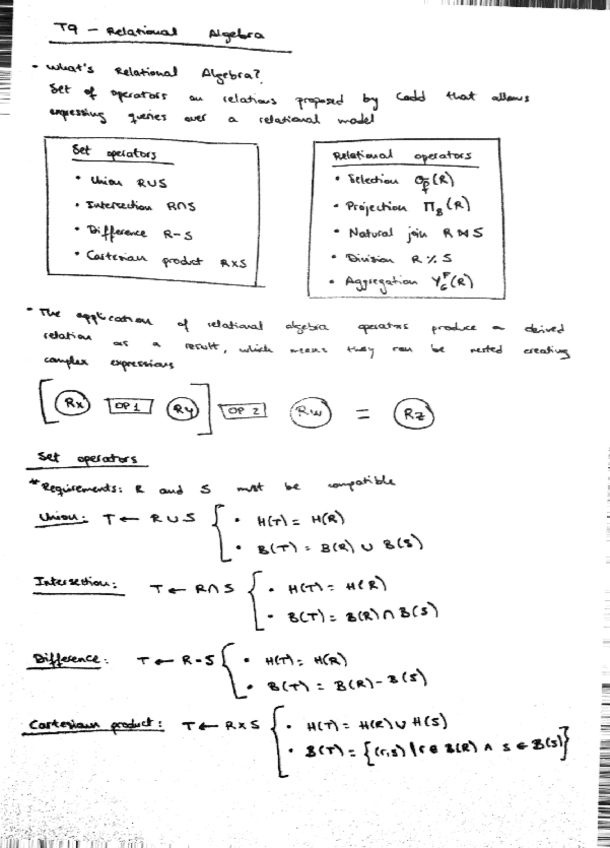 T9 - Relational Algebra
• What's Relational Algebra?
Set of operators on relations proposed by Codd that allows
expressing queries over a relational model
Set operators
• Union R∪S
• Intersection R∩S
• Difference R-S
• Cartesian product R×S
Relational operators
• Selection σ_F(R)
• Projection Π_B(R)
• Natural join R⋈S
• Division R ٪ S
• Aggregation γ_G^F(R)
• The application of relational algebra operators produce a derived
relation as a result, which means they can be nested creating
complex expressions
[ Rx OP1 Ry ] OP 2 Rw = Rz
Set operators
*Requirements: R and S must be compatible
Union: T ← R ∪ S { • H(T) = H(R)
• B(T) = B(R) ∪ B(S)
Intersection: T ← R∩S { • H(T) = H(R)
• B(T) = B(R)∩B(S)
Difference: T ← R-S { • H(T) = H(R)
• B(T) = B(R) - B(S)
Cartesian product: T ← R×S { • H(T) = H(R) ∪ H(S)
• B(T) = {(r,s) | r ∈ B(R) ∧ s ∈ B(S)}